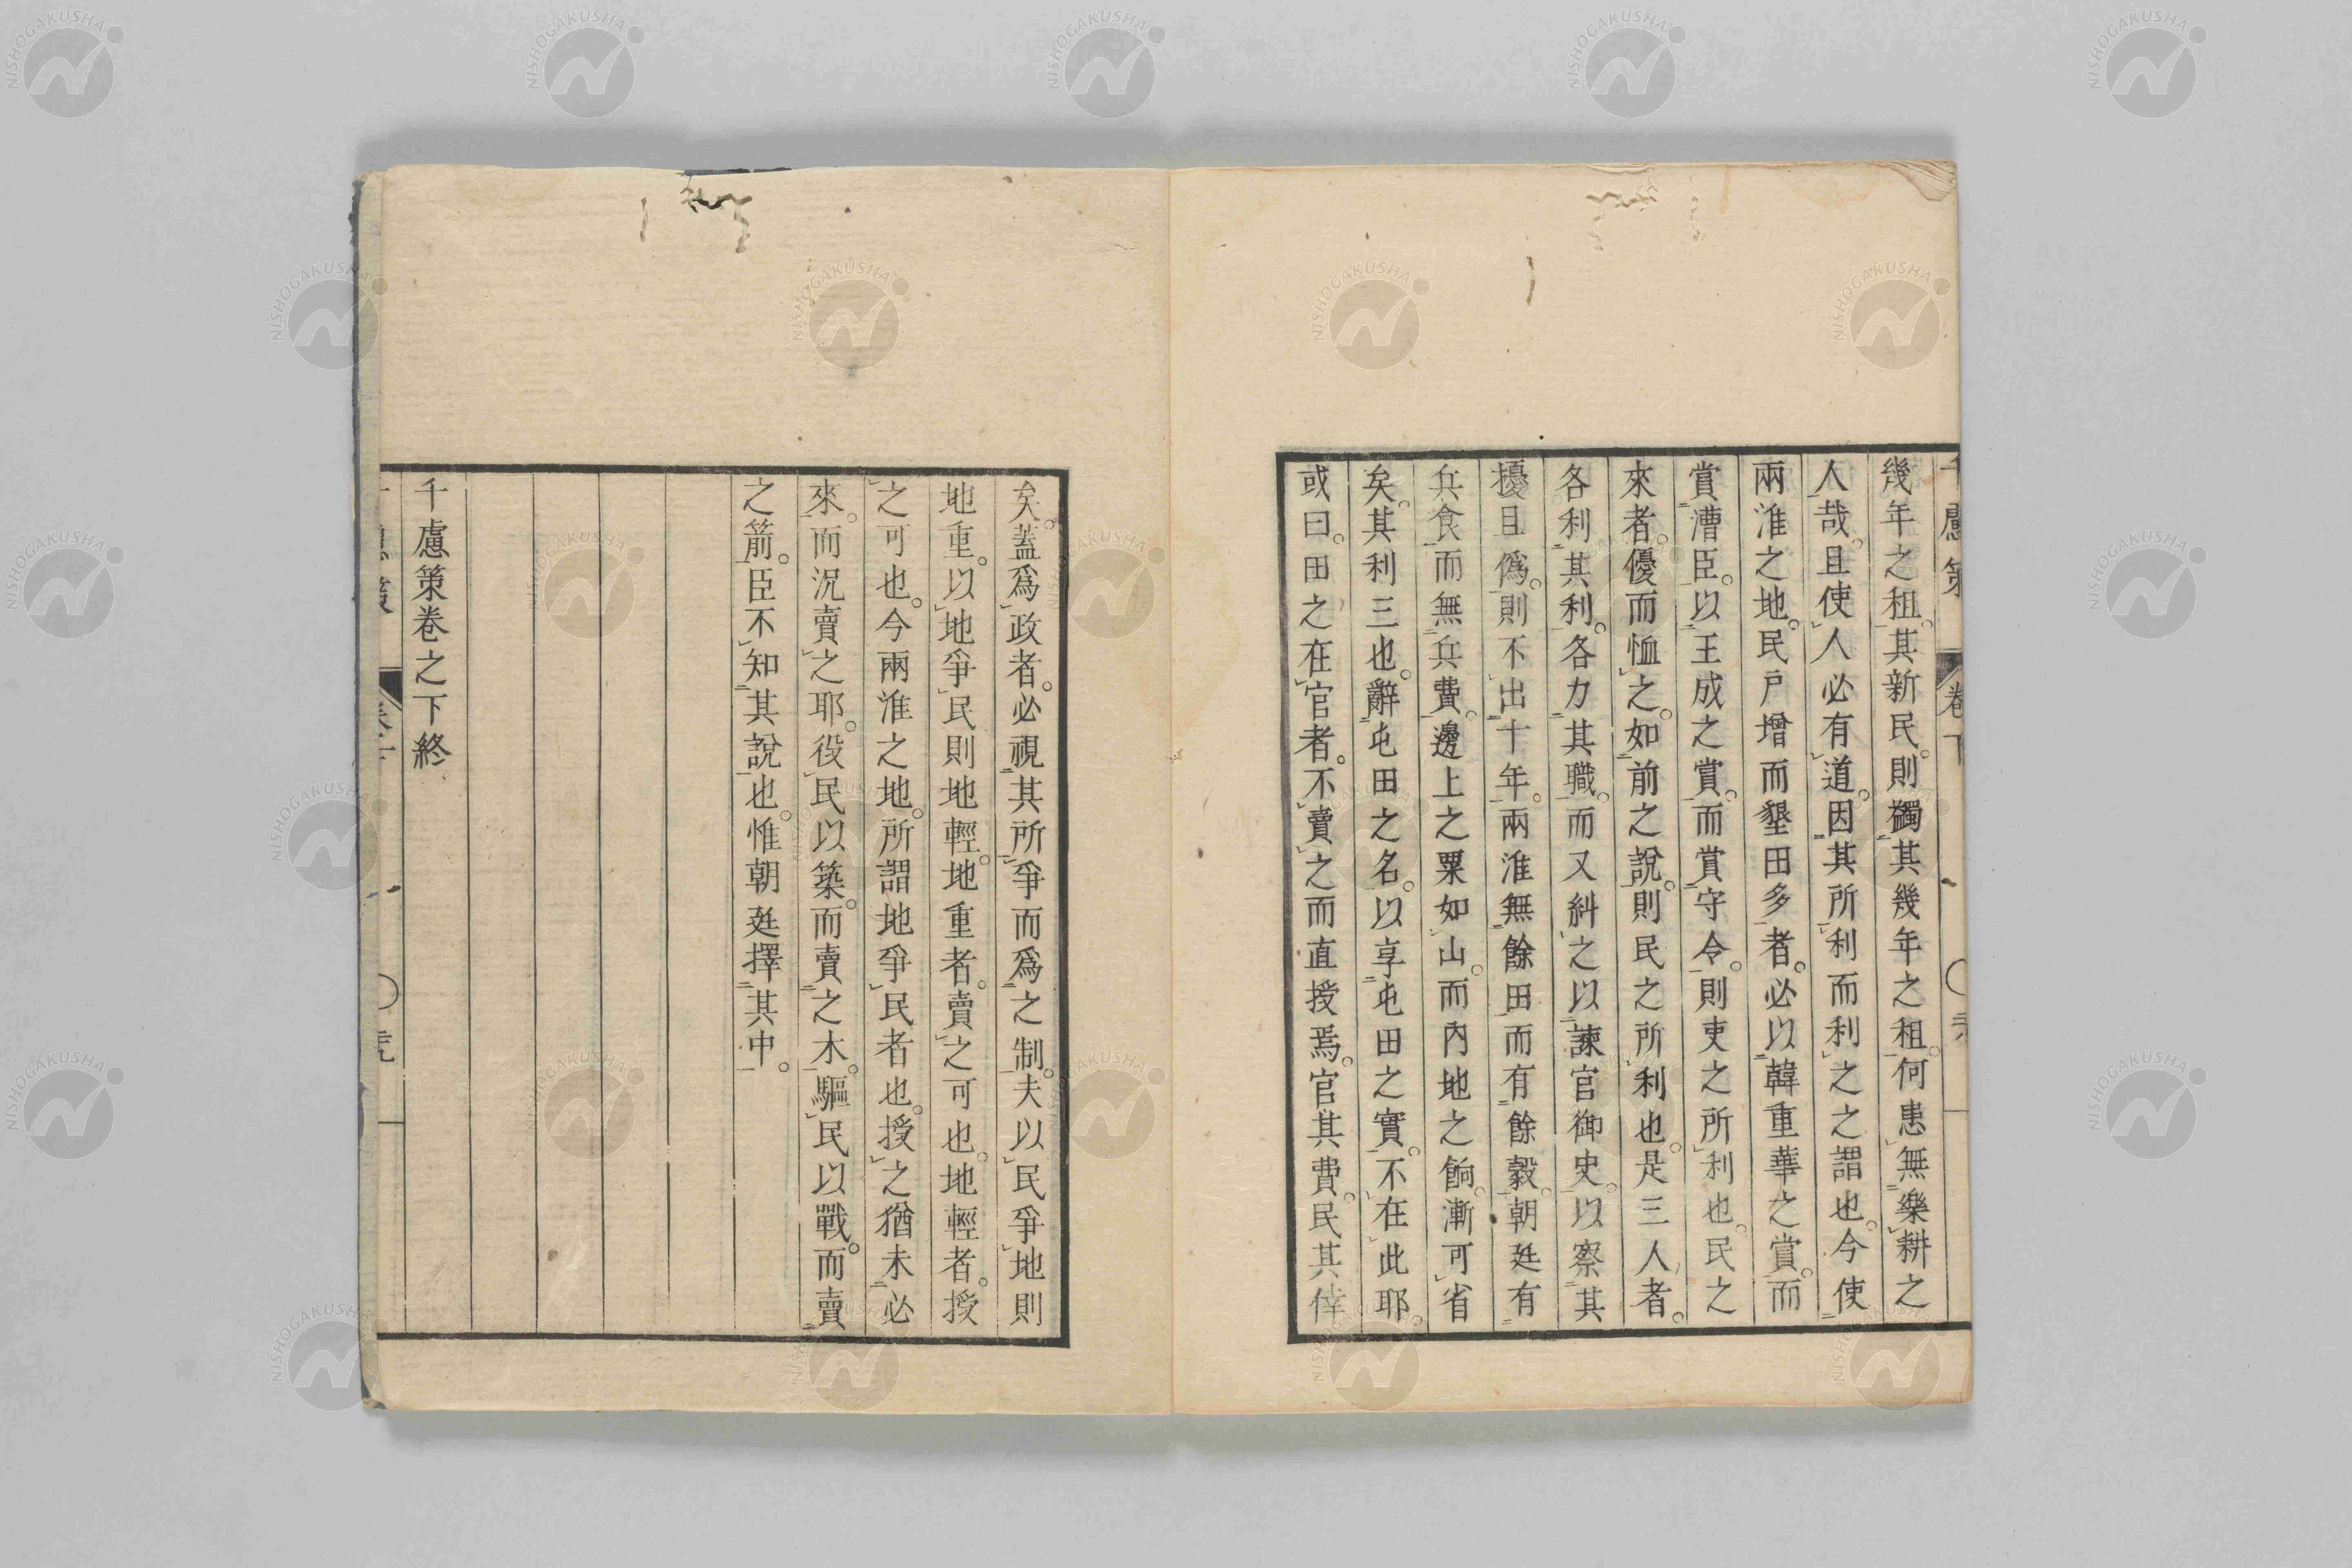 幾年之租。其新民。則蠲其幾年之租。何患無樂耕之
人哉。且使人必有道。因其所利而利之之謂也。今使
兩淮之地。民戶增而墾田多者。必以韓重華之賞。而
賞漕臣。以王成之賞。而賞守令。則吏之所利也。民之
來者。優而恤之。如前之說。則民之所利也。是三人者。
各利其利。各力其職。而又糾之以諫官御史。以察其
擾且僞。則不出十年。兩淮無餘田。而有餘穀。朝廷有
兵食而無兵費。邊上之粟如山。而內地之餉漸可省
矣。其利三也。辭屯田之名。以享屯田之實。不在此耶。
或曰。田之在官者。不賣之而直授焉。官其費。民其倖
矣。蓋爲政者。必視其所爭而爲之制。夫以民爭地則
地重。以地爭民則地輕。地重者。賣之可也。地輕者。授
之可也。今兩淮之地。所謂地爭民者也。授之猶未必
來。而況賣之耶。役民以築。而賣之木。驅民以戰。而賣
之箭。臣不知其說也。惟朝廷擇其中。
千慮策卷之下終
NISHOGAKUSHA